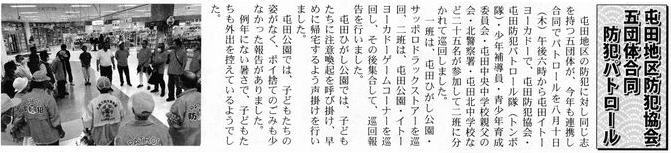 屯田地区防犯協会
五団体合同
防犯パトロール
屯田地区の防犯に対し同じ志
を持つ五団体が、今年も連携し
合同でパトロールを八月十日
（木）午後六時から屯田イトー
ヨーカドーで、屯田防犯協会・
屯田防犯パトロール隊（トンボ
隊）・少年補導員・青少年育成
委員会・屯田中央中学校親父の
会・北警察署・屯田北中学校な
ど二十五名が参加して二班に分
かれて巡回しました。
一班は、屯田ひがし公園・
サッポロドラックストアーを巡
回、二班は、屯田公園・イトー
ヨーカドーゲームコーナーを巡
回し、その後集合して、巡回報
告を行いました。
屯田ひがし公園では、子ども
たちに注意喚起を呼び掛け、早
めに帰宅するよう声掛けを行い
ました。
屯田公園では、子どもたちの
姿がなく、ポイ捨てのごみも少
なかった報告がありました。
例年にない暑さで、子どもた
ちも外出を控えているようでし
た。